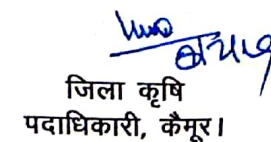 जिला कृषि
पदाधिकारी, कैमूर।